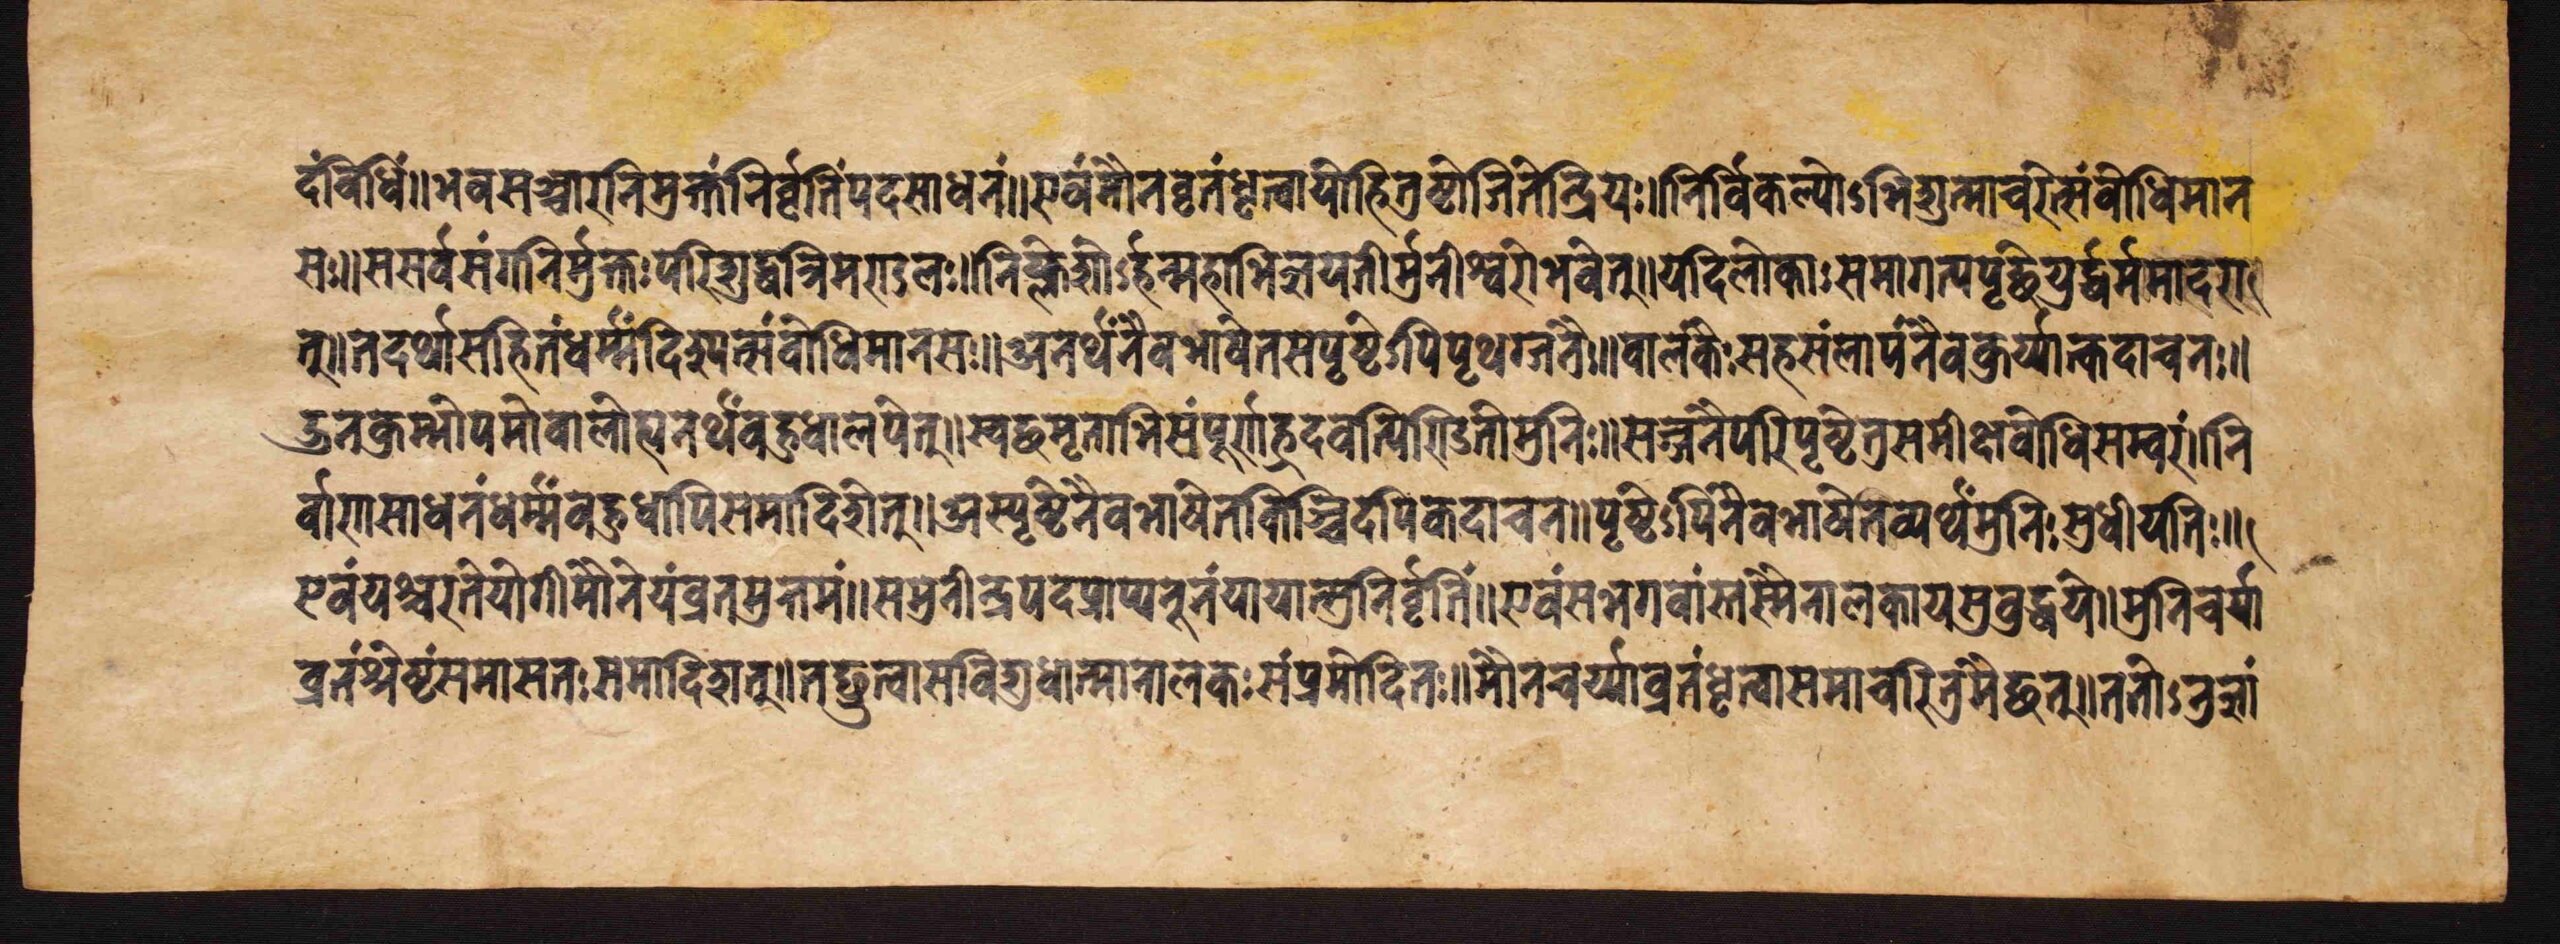 दंविधिं॥भवसञ्चारनिमुक्तंनिर्वृतिंपदसाधनं॥एवंमौनवृतंधृत्वायोहितुष्टोजितेन्द्रियः॥निर्विकल्पोऽभिशुत्माचरेत्संवोधिमान
सः॥ससर्वसंगनिर्मुक्तःपरिशुद्धत्रिमण्डलः॥निष्क्लेशोऽर्हन्महाभिज्ञयतीर्मुनीश्वरोभवेत्॥यदिलोकाःसमागत्यपृछेयुर्द्धर्ममादरा
त्॥तदर्थासहितंधर्म्मंदिश्यत्संवोधिमानसः॥अनर्थंनैवभाषेतसपृष्टेऽपिपृथग्जनैः॥वालकैःसहसंलापंनैवकुर्य्यात्कदाचनः॥
डुनकुम्भोपमोवालोह्यनर्थंवहुधालपेत्॥स्वद्धमृताभिसंपूर्णाह्रदवत्पिण्डितोमुनिः॥सज्जनैपरिपृष्टेतुसमीक्षवोधिसम्वरं॥नि
र्वाणसाधनंधर्म्मंवहुधापिसमादिशेत्॥अस्पृष्टेनैवभाषेतकिञ्चिदपिकदाचन॥पृष्टेऽपिनैवभाषेतव्यर्थंमुनिःसुधीयतिः॥
एवंयश्चरतेयोगीमौनेयंव्रतमुत्तमं॥समुनीन्द्रपदप्राप्यनूनंयायात्सुनिर्वृतिं॥एवंसभगवांस्तस्मैनालकायसुवुद्धये॥मुनिचर्या
व्रतंश्रेष्टंसमासतःसमादिशत्॥तच्छ्रुत्वासविशुधात्मानालकःसंप्रमोदितः॥मौनचर्य्याव्रतंधृत्वासमाचरितुमैच्छत्॥ततोऽनुज्ञां